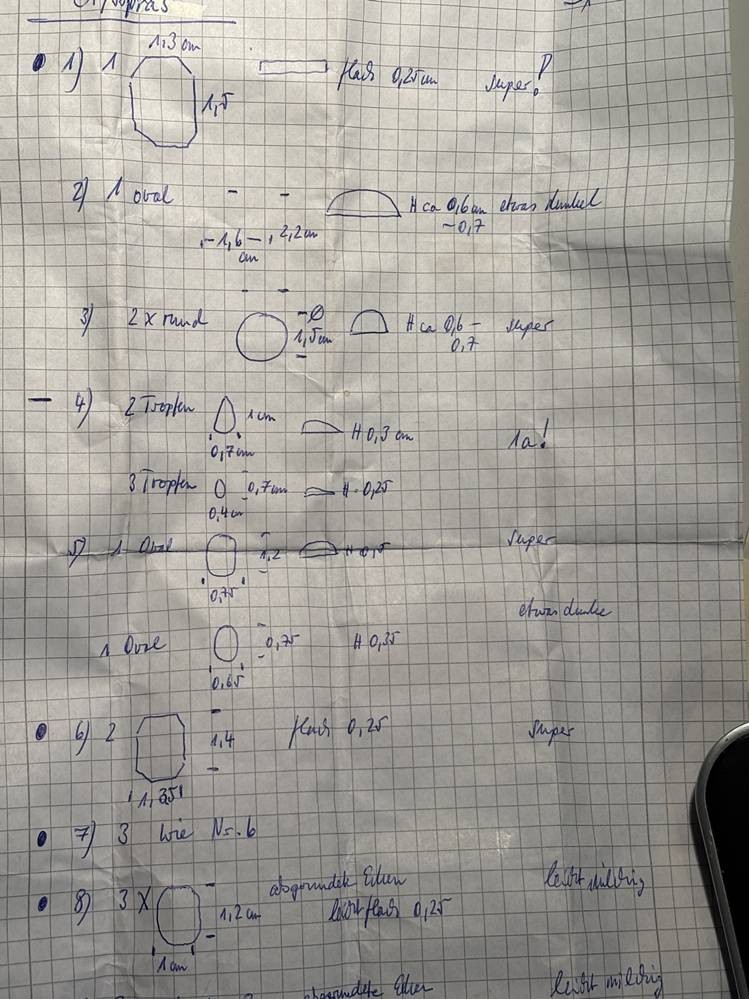 1,3 cm
1) 1 1,5 flach 0,25cm super!
2) 1 oval H ca 0,6cm etwas dunkel
~0,7
1,6 2,2cm
cm
3) 2 x rund Ø 1,5cm H ca 0,6 – super
0,7
4) 2 Tropfen 1cm H 0,3 cm 1a!
0,7cm
3 Tropfen 0,7cm H 0,25
0,4cm
5) 1 Oval 1,2 H 0,5 super
0,75
etwas
1 Oval 0,75 H 0,35
0,65
6) 2 1,4 flach 0,25 super
1,35
7) 3 wie Nr. 6
abgerundete Ecken leicht milchig
8) 3 X 1,2 cm leicht flach 0,25
1 cm
abgerundete Ecken leicht milchig